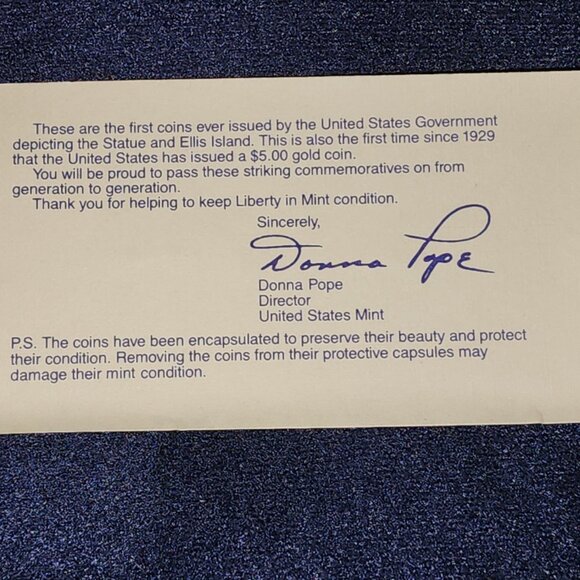 These are the first coins ever issued by the United States Government
depicting the Statue and Ellis Island. This is also the first time since 1929
that the United States has issued a $5.00 gold coin.
You will be proud to pass these striking commemoratives on from
generation to generation.
Thank you for helping to keep Liberty in Mint condition.
Sincerely,
Donna Pope
Donna Pope
Director
United States Mint
P.S. The coins have been encapsulated to preserve their beauty and protect
their condition. Removing the coins from their protective capsules may
damage their mint condition.